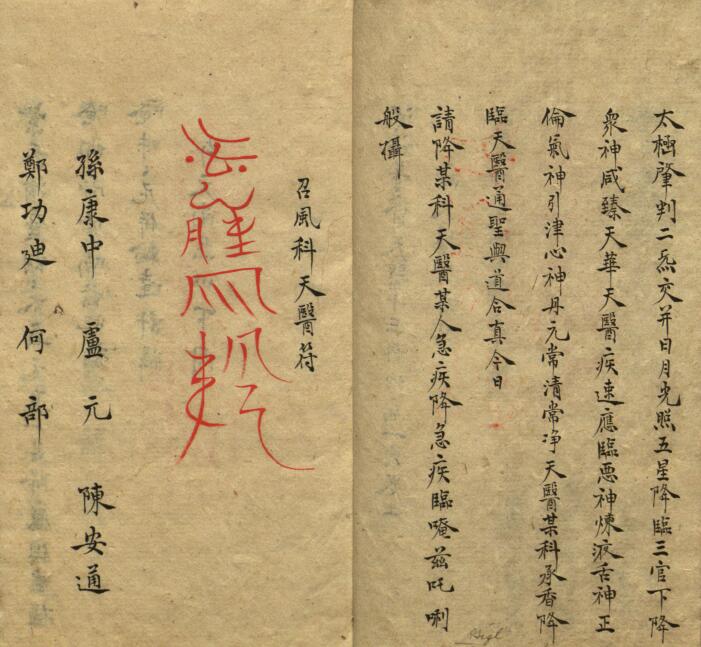 太極肇判二炁交并日月光照五星降臨三官下降
衆神咸臻天華天醫疾速應臨悪神煉液舌神正
倫氣神引津心神丹元常清常净天醫某科承香降
臨天醫通聖與道合真今日
請降某科天醫某人急疾降急疾臨唵茲吒唎
般攝
召風科天醫符
孫康中 盧元 陳安通
鄭功廸 何部